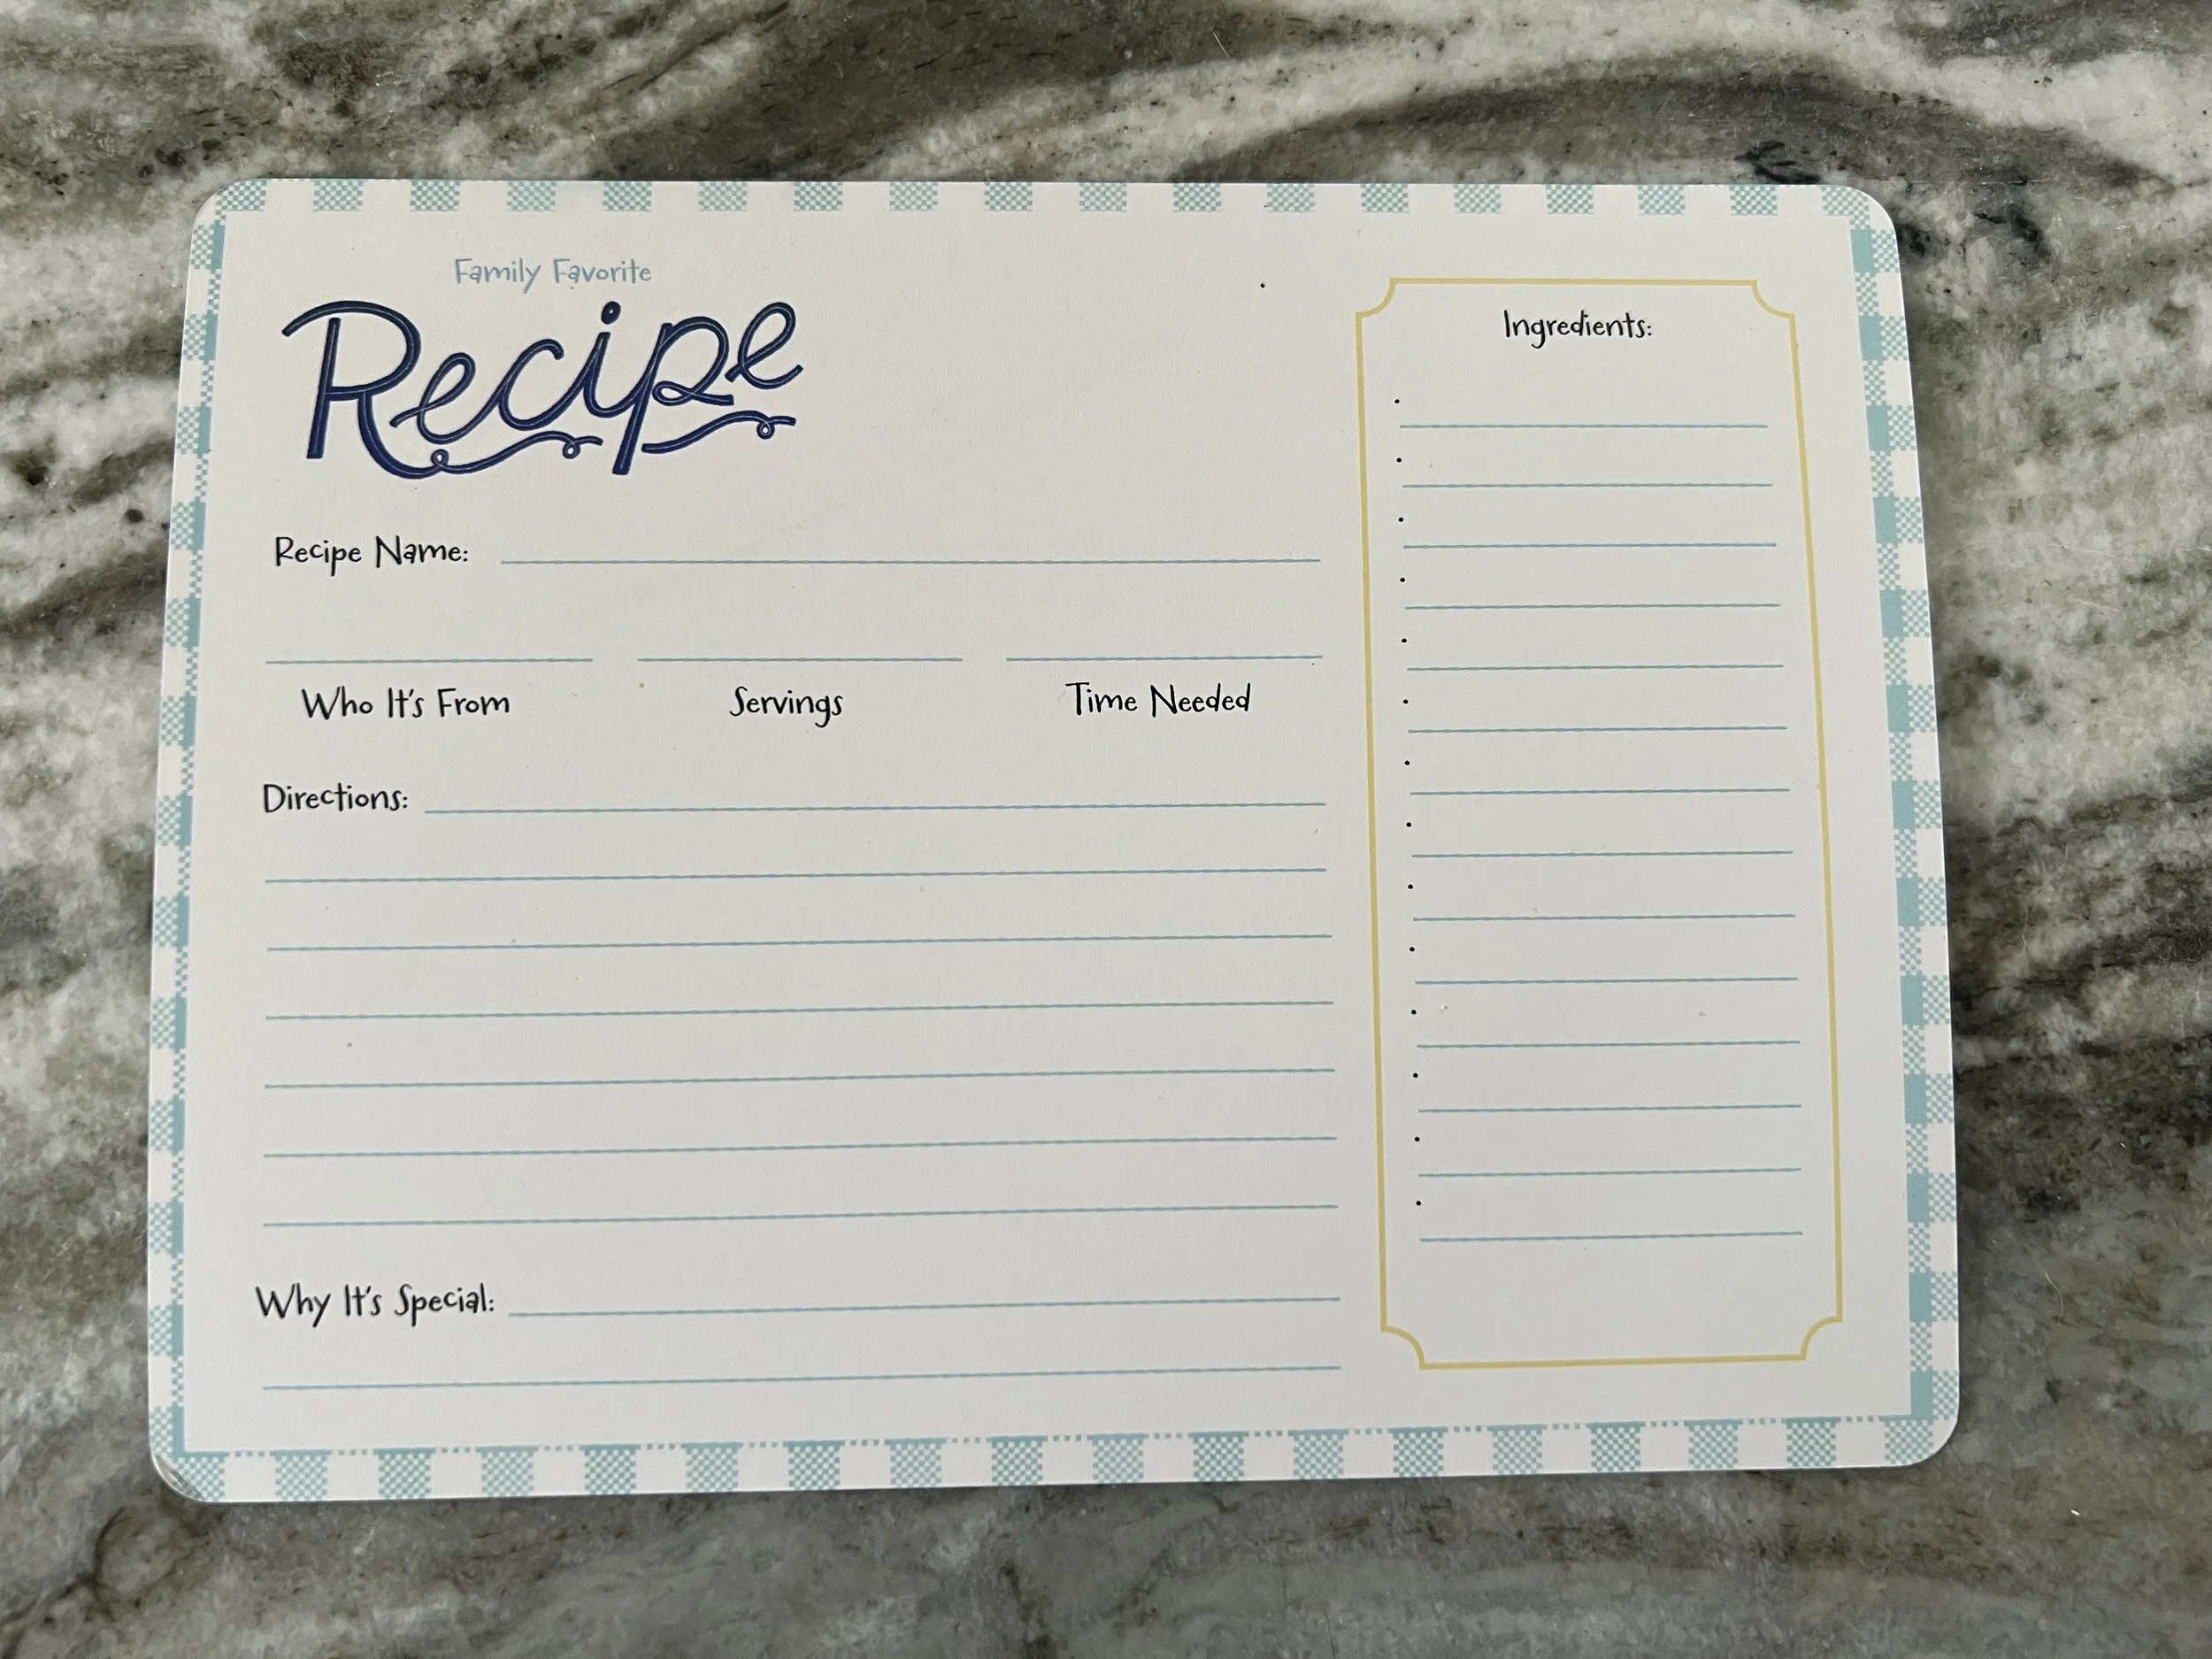 Family Favorite
Recipe
Recipe Name:
Who It's From
Servings
Time Needed
Directions:
Why It's Special:
Ingredients: